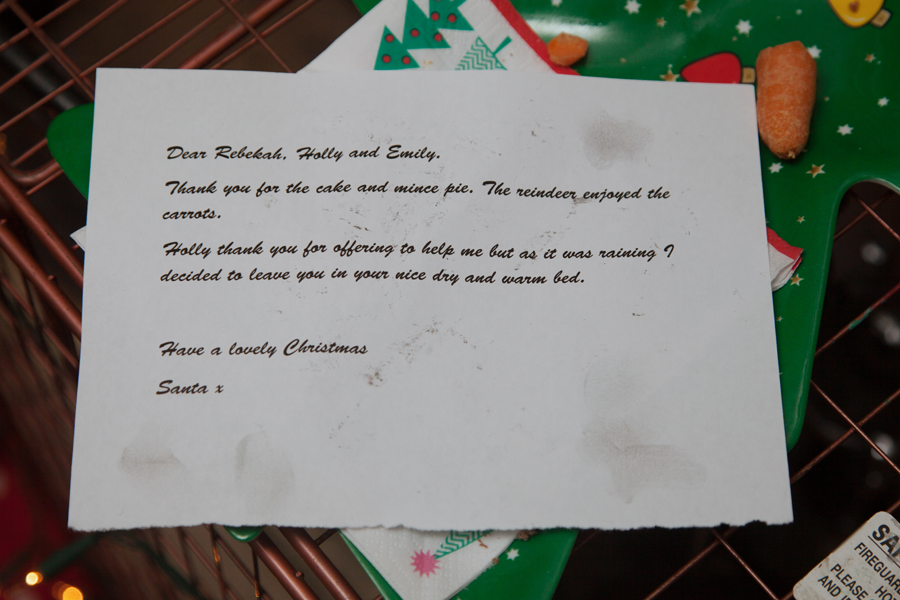 Dear Rebekah, Holly and Emily.
Thank you for the cake and mince pie. The reindeer enjoyed the
carrots.
Holly thank you for offering to help me but as it was raining I
decided to leave you in your nice dry and warm bed.
Have a lovely Christmas
Santa x
FIREGUAR
PLEASE